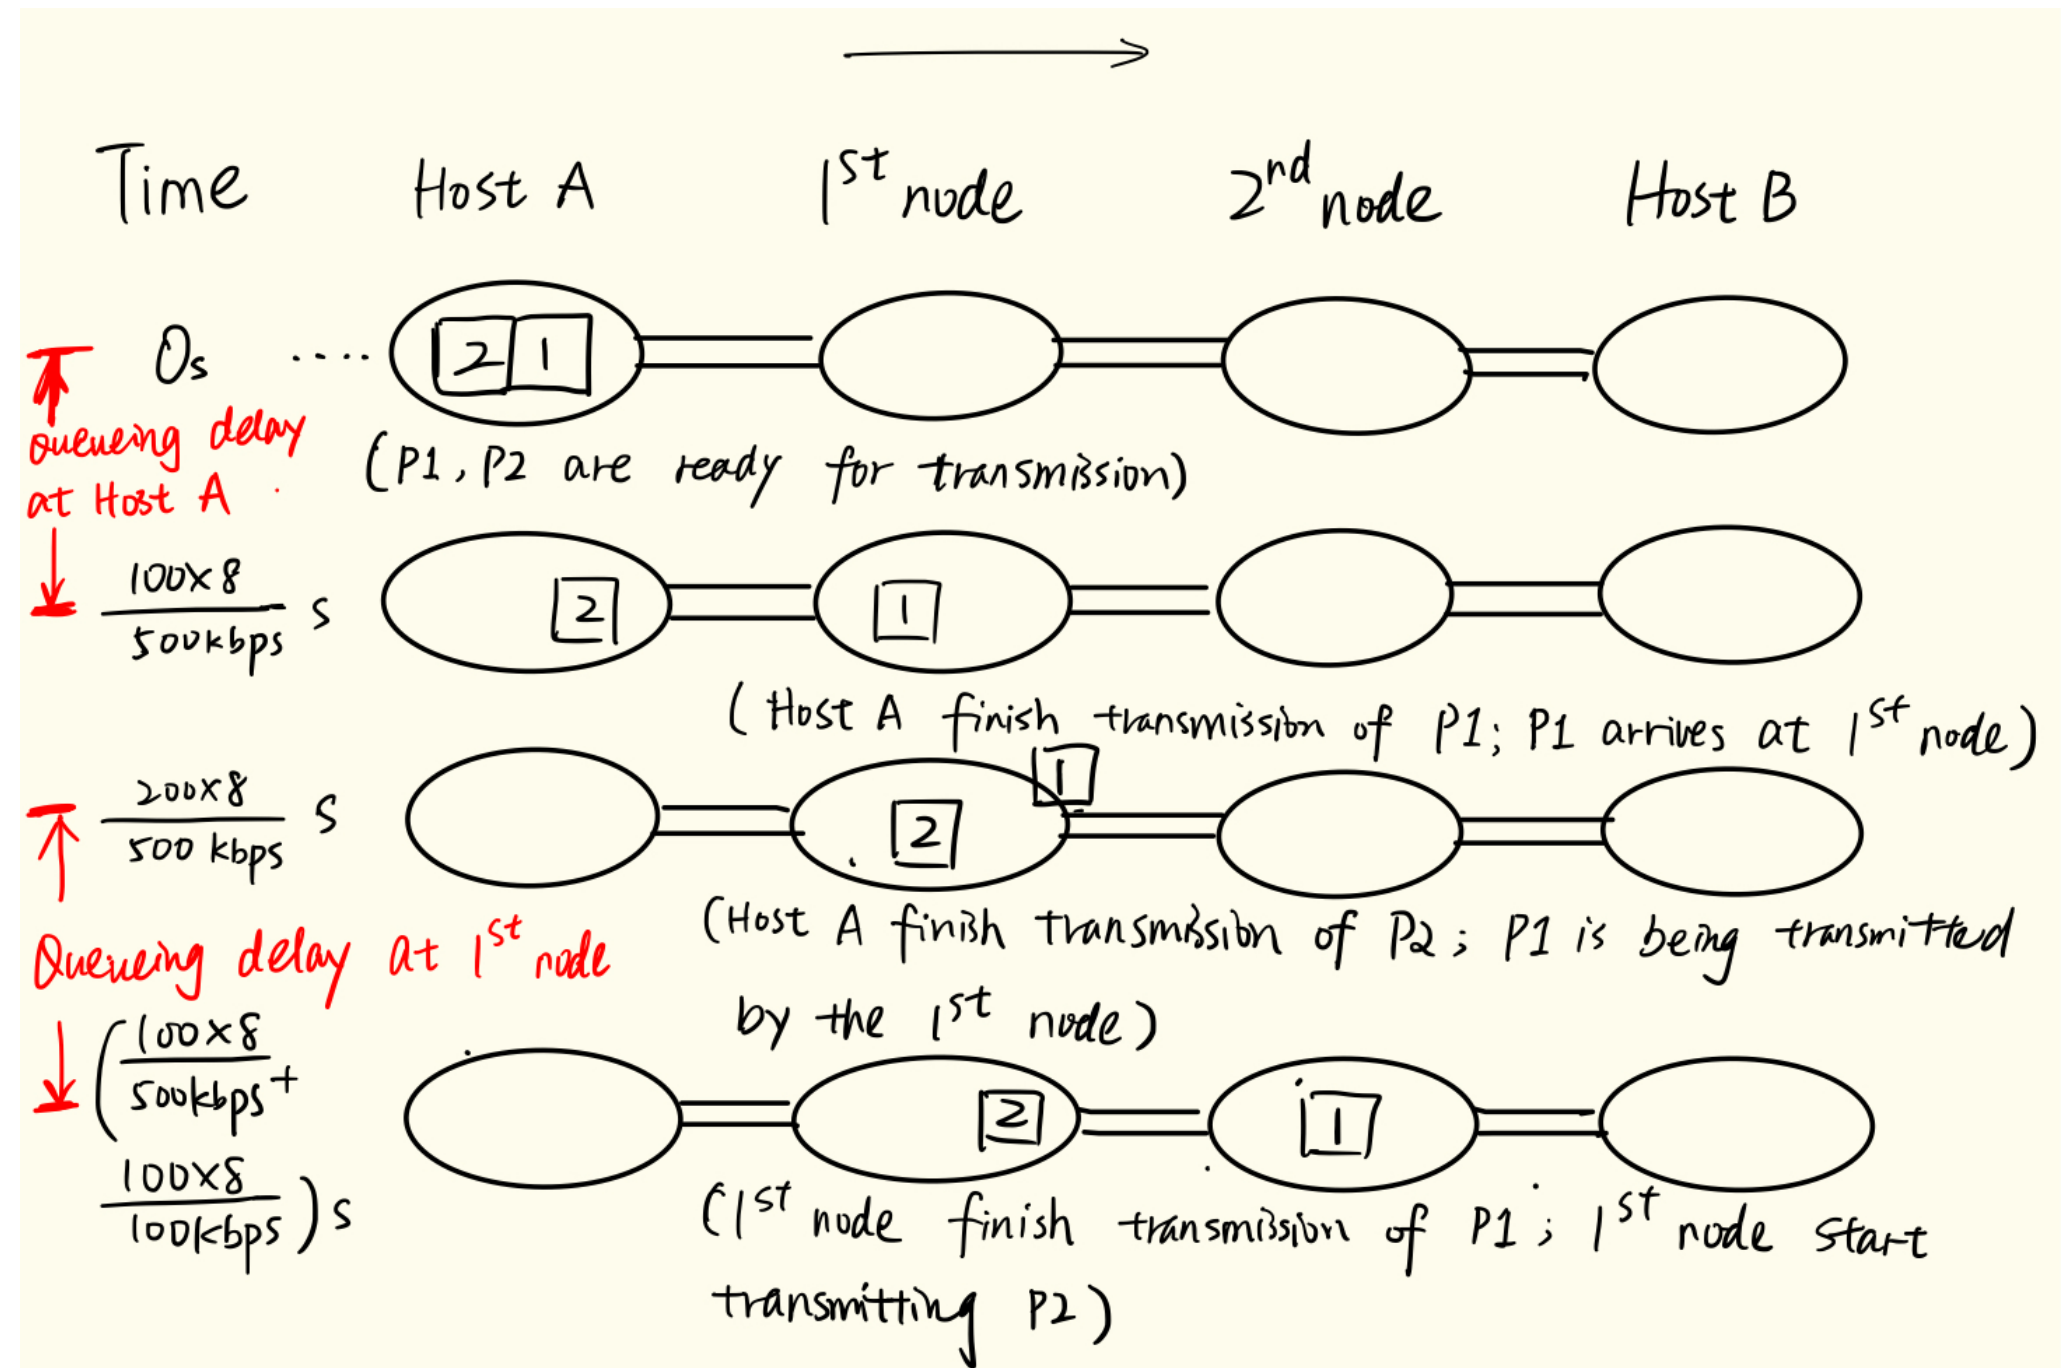 Time Host A 1st node 2nd node Host B
0s .... 2 1
Queueing delay
at Host A
(P1, P2 are ready for transmission)
100×8
500kbps s
2 1
(Host A finish transmission of P1; P1 arrives at 1st node)
200×8
500 kbps s
1
2
(Host A finish transmission of P2; P1 is being transmitted
by the 1st node)
Queueing delay at 1st node
(100×8
500kbps +
100×8
100kbps ) s
2 1
(1st node finish transmission of P1; 1st node start
transmitting P2)